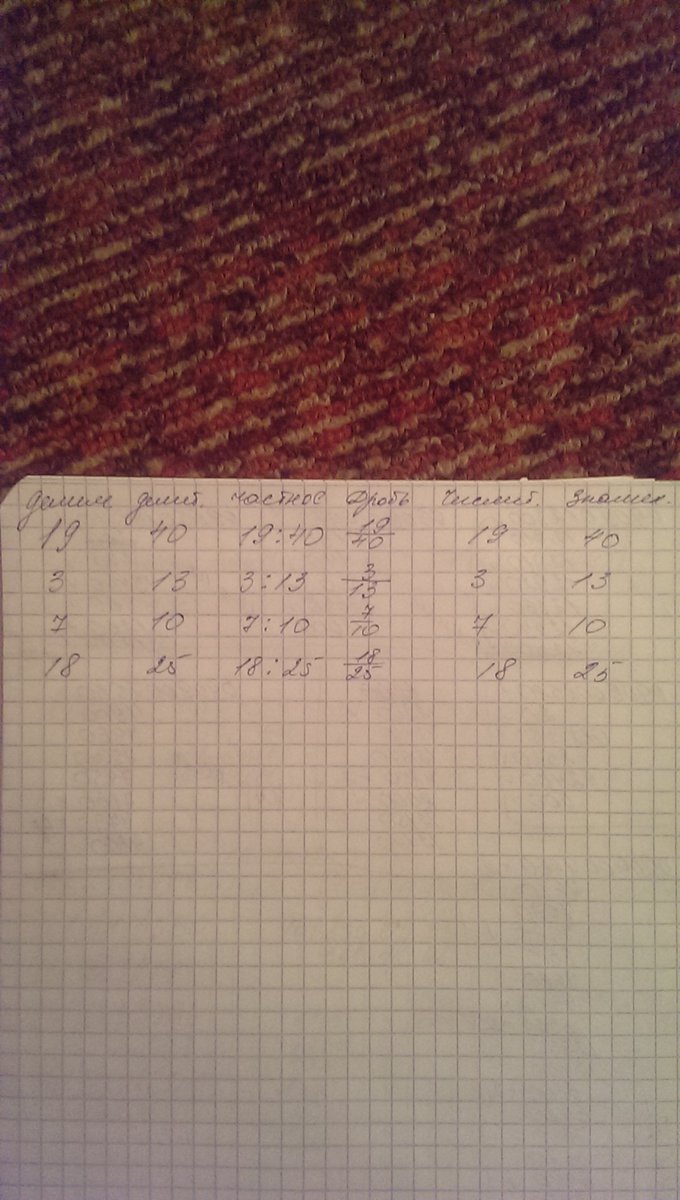 делим делит. частное дробь числит. знамен.
19 40 19:40 19/40 19 40
3 13 3:13 3/13 3 13
7 10 7:10 7/10 7 10
18 25 18:25 18/25 18 25